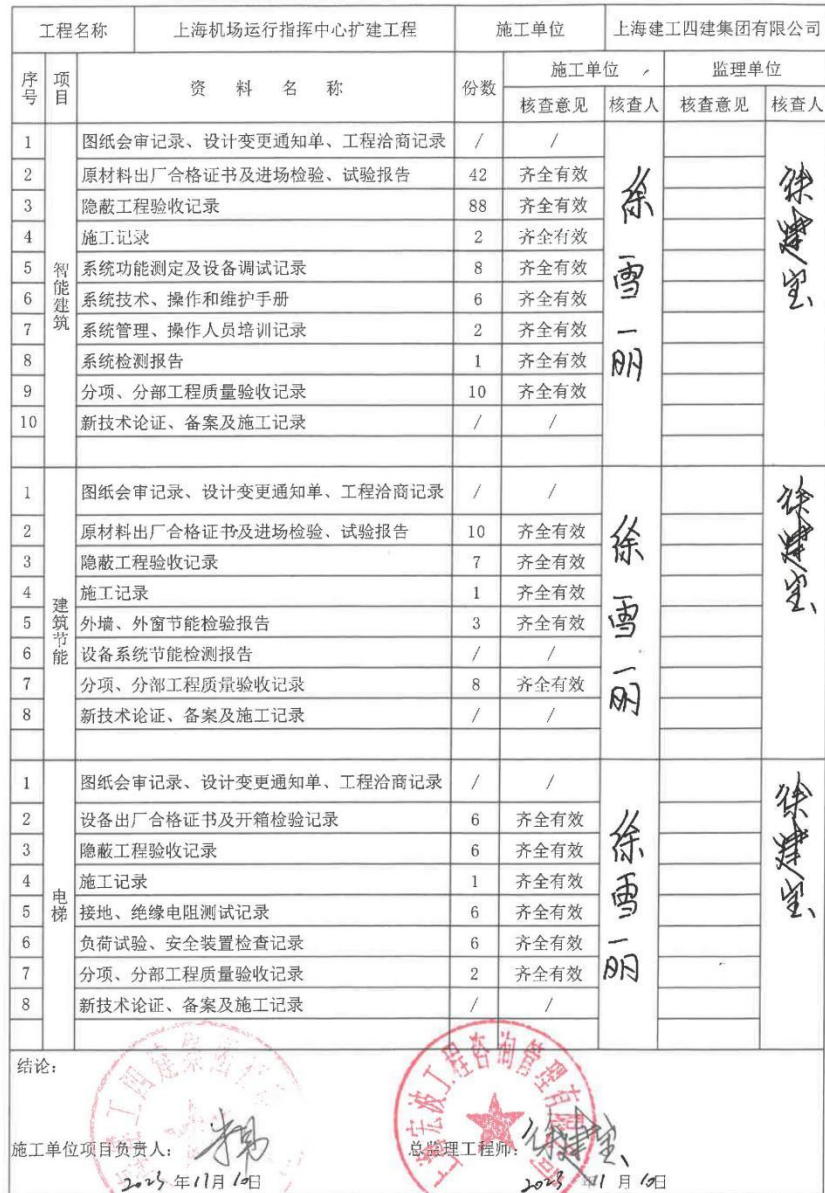 工程名称 上海机场运行指挥中心扩建工程 施工单位 上海建工四建集团有限公司
序号 项目 资料名称 份数 施工单位 监理单位
核查意见 核查人 核查意见 核查人
智能建筑
1 图纸会审记录、设计变更通知单、工程洽商记录 / /
2 原材料出厂合格证书及进场检验、试验报告 42 齐全有效
3 隐蔽工程验收记录 88 齐全有效
4 施工记录 2 齐全有效
5 系统功能测定及设备调试记录 8 齐全有效
6 系统技术、操作和维护手册 6 齐全有效
7 系统管理、操作人员培训记录 2 齐全有效
8 系统检测报告 1 齐全有效
9 分项、分部工程质量验收记录 10 齐全有效
10 新技术论证、备案及施工记录 / /
徐雪丽
徐建宝
建筑节能
1 图纸会审记录、设计变更通知单、工程洽商记录 / /
2 原材料出厂合格证书及进场检验、试验报告 10 齐全有效
3 隐蔽工程验收记录 7 齐全有效
4 施工记录 1 齐全有效
5 外墙、外窗节能检验报告 3 齐全有效
6 设备系统节能检测报告 / /
7 分项、分部工程质量验收记录 8 齐全有效
8 新技术论证、备案及施工记录 / /
徐雪丽
徐建宝
电梯
1 图纸会审记录、设计变更通知单、工程洽商记录 / /
2 设备出厂合格证书及开箱检验记录 6 齐全有效
3 隐蔽工程验收记录 6 齐全有效
4 施工记录 1 齐全有效
5 接地、绝缘电阻测试记录 6 齐全有效
6 负荷试验、安全装置检查记录 6 齐全有效
7 分项、分部工程质量验收记录 2 齐全有效
8 新技术论证、备案及施工记录 / /
徐雪丽
徐建宝
结论:
工四建集团
宏波工程咨询管理有限
施工单位项目负责人: 总监理工程师: 徐建宝
2023年11月10日 2023年11月10日